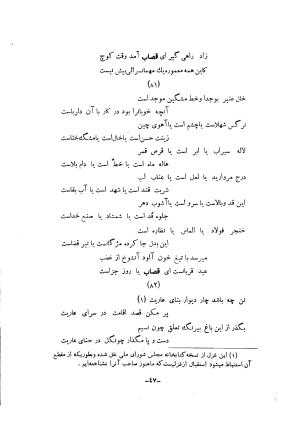 زاد راهی گیر ای قصاب آمد وقت کوچ
کاین همه معموره یك مهمانسرائی بیش نیست
(۸۱)
خال عنبر بوجدا وخط مشگین موجد است
آنچه خوبانرا بود در کار با آن داریاست
نرگس شهلاست یاچشم است یاآهوی چین
زینت حسن است یاخال است یامشك ختاست
لاله سیراب یا ابر است یا قرص قمر
هاله ماه است یا خط است یا دام بلاست
درج مروارید یا لعل است یا عناب لب
شربت قند است یا شهد است یا آب بقاست
این قد وبالاست یا سرو است یاآشوب دهر
جلوه قد است یا شمشاد یا صنع خداست
خنجر فولاد یا الماس یا نظاره است
این بدل جا کرده مژگانست یا تیر قضاست
میرسد با تیغ خون آلود آنشوخ از غضب
عید قربانست ای قصاب یا روز جزاست
(۸۲)
تن چه باشد چار دیوار بنای عاریت (۱)
بر مکن قصد اقامت در سرای عاریت
بگذار از این باغ بیرنگ تعلق چون نسیم
دست و پا مگذار چون گل در حنای عاریت
(۱) این غزل از نسخه کتابخانه مجلس شورای ملی نقل شده وبطوریکه از مقطع
آن استنباط میشود استقبال از غزلیست که ماهنوز صاحب آنرا نشناخته‌ایم.
-۴۷-